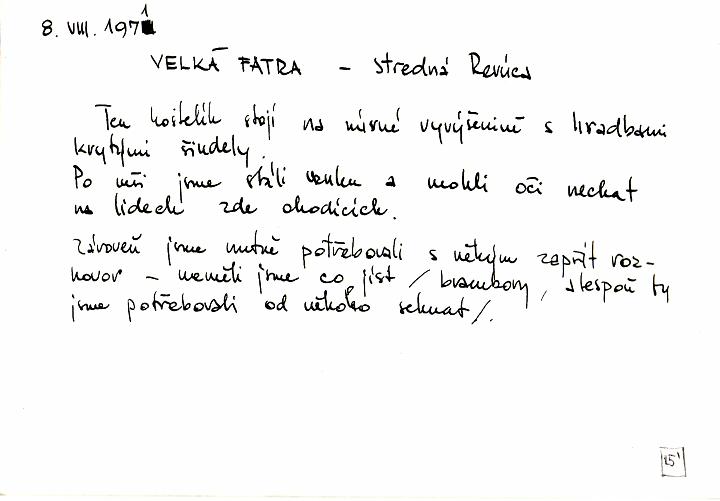 8. VIII. 1971
VELKÁ FATRA – Stredná Revúca
Ten kostelík stojí na mírné vyvýšenině s hradbami
krytými šindely.
Po mši jsme stáli venku a mohli oči nechat
na lidech zde chodících.
Zároveň jsme nutně potřebovali s někým zapřít roz-
hovor – neměli jsme co jíst / brambory, alespoň ty
jsme potřebovali od někoho sehnat /.
15'